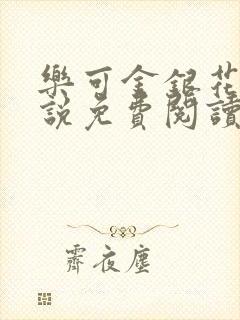 樂可金銀花
說免費閱讀
霽夜塵